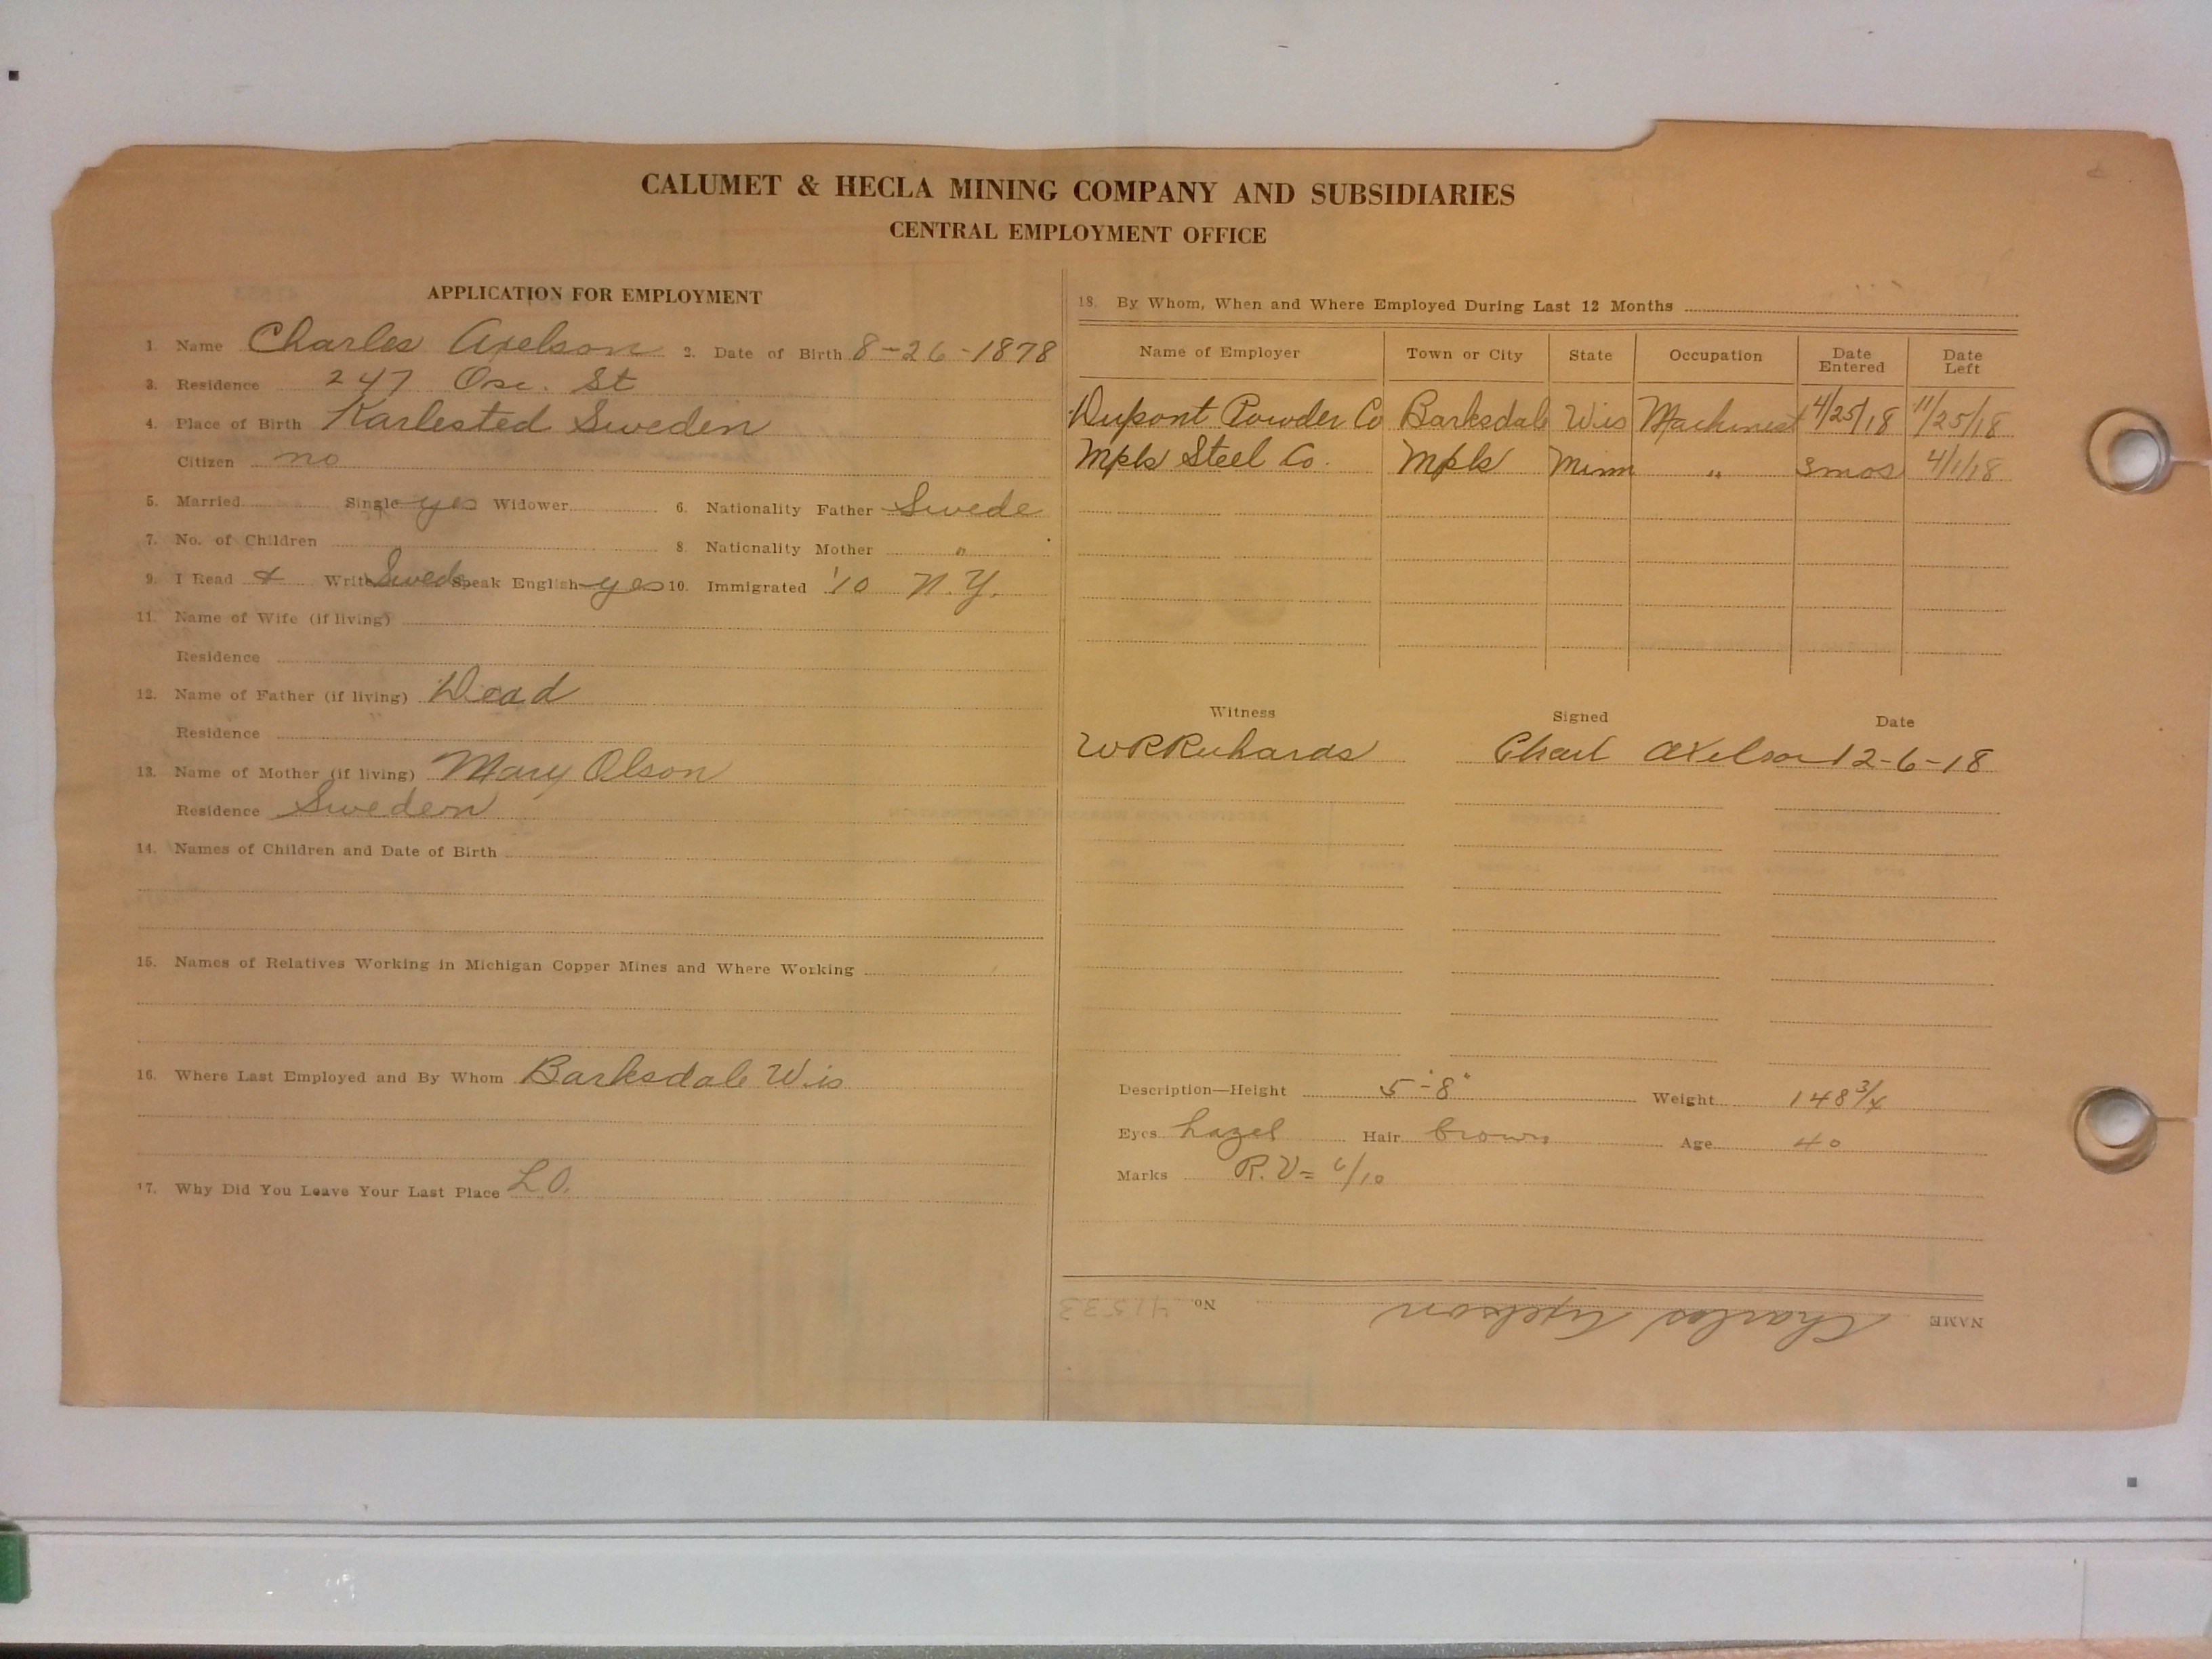 CALUMET & HECLA MINING COMPANY AND SUBSIDIARIES
CENTRAL EMPLOYMENT OFFICE
APPLICATION FOR EMPLOYMENT
1. Name Charles Axelson 2. Date of Birth 8-26-1878
3. Residence 247 Osc. St
4. Place of Birth Karlested Sweden
Citizen no
5. Married Single yes Widower 6. Nationality Father Swede
7. No. of Children 8. Nationality Mother "
9. I Read & Write Swede Speak English yes 10. Immigrated '10 N.Y.
11. Name of Wife (if living)
Residence
12. Name of Father (if living) Dead
Residence
13. Name of Mother (if living) Mary Olson
Residence Sweden
14. Names of Children and Date of Birth
15. Names of Relatives Working in Michigan Copper Mines and Where Working
16. Where Last Employed and By Whom Barksdale Wis
17. Why Did You Leave Your Last Place L.O.
18. By Whom, When and Where Employed During Last 12 Months
Name of Employer Town or City State Occupation Date Entered Date Left
Dupont Powder Co Barksdale Wis Machinest 4/25/18 11/25/18
Mpls Steel Co. Mpls Minn " 3mos 4/1/18
Witness Signed Date
WRRichards Charl Axelson 12-6-18
Description—Height 5'-8" Weight 148 3/4
Eyes hazel Hair brown Age 40
Marks R.V= 6/10
NAME Charles Axelson No. 41533